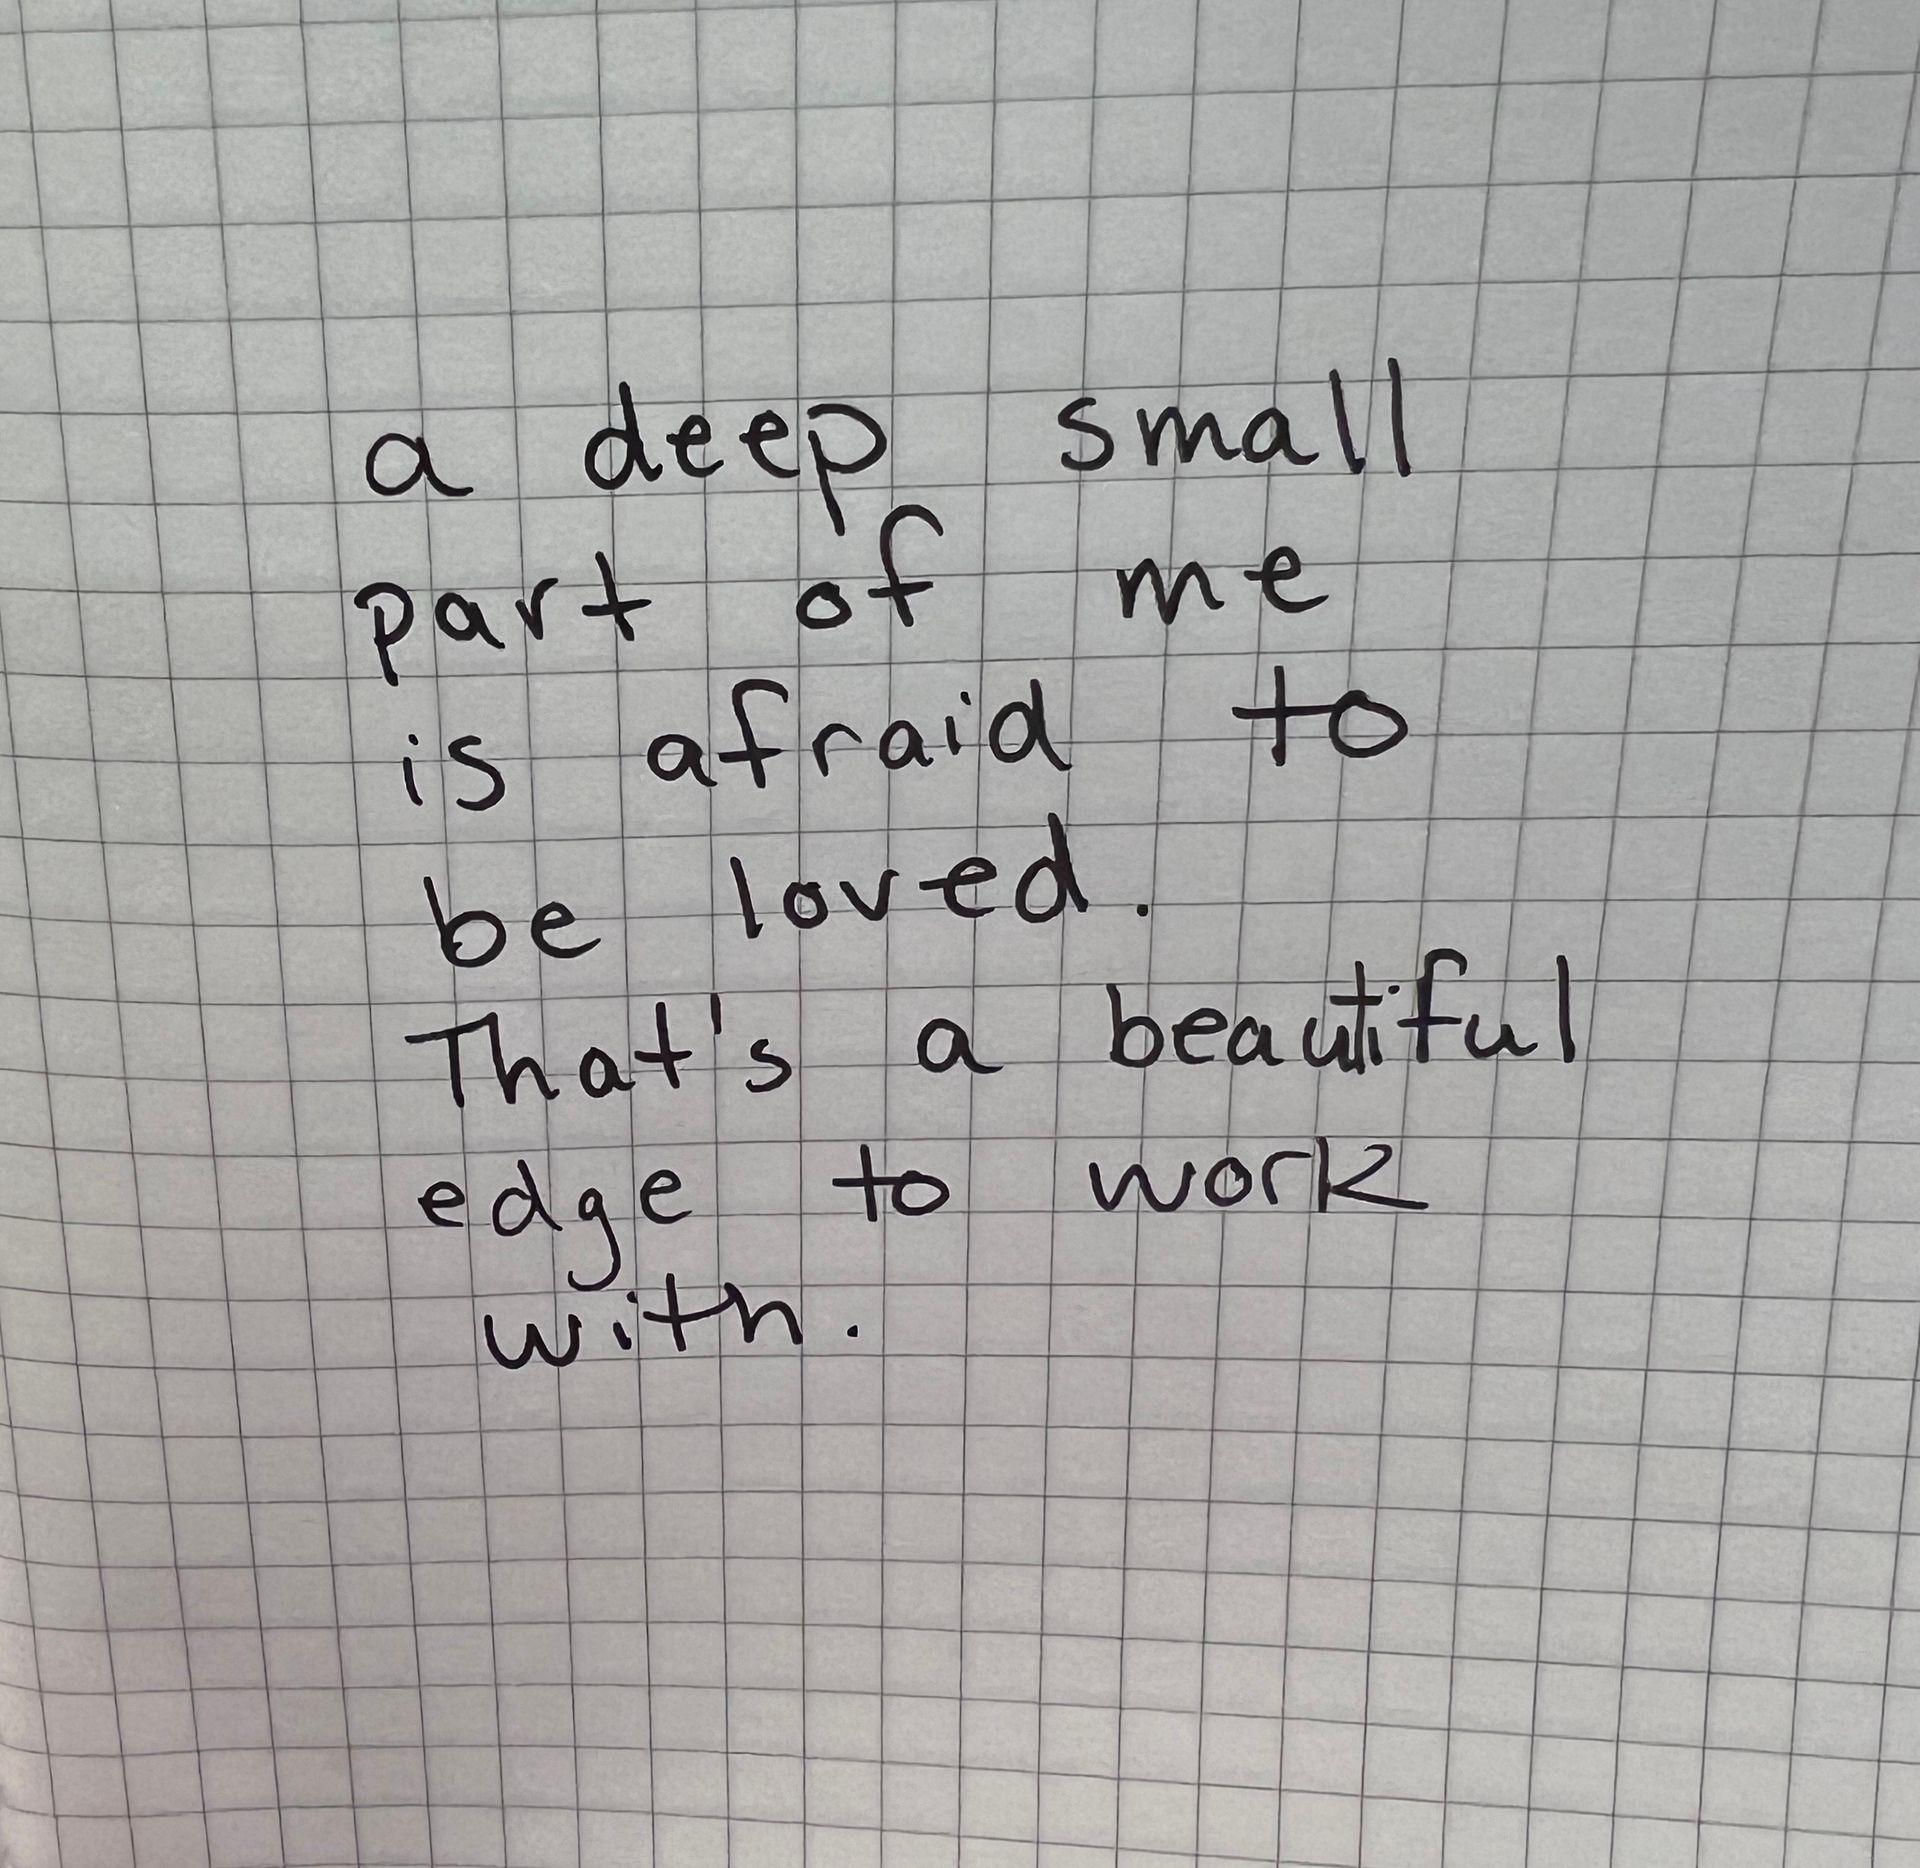 a deep small
part of me
is afraid to
be loved.
That's a beautiful
edge to work
with.